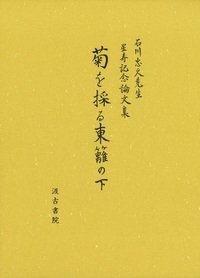 石川忠久先生
星寿記念論文集
菊を採る東籬の下
汲古書院